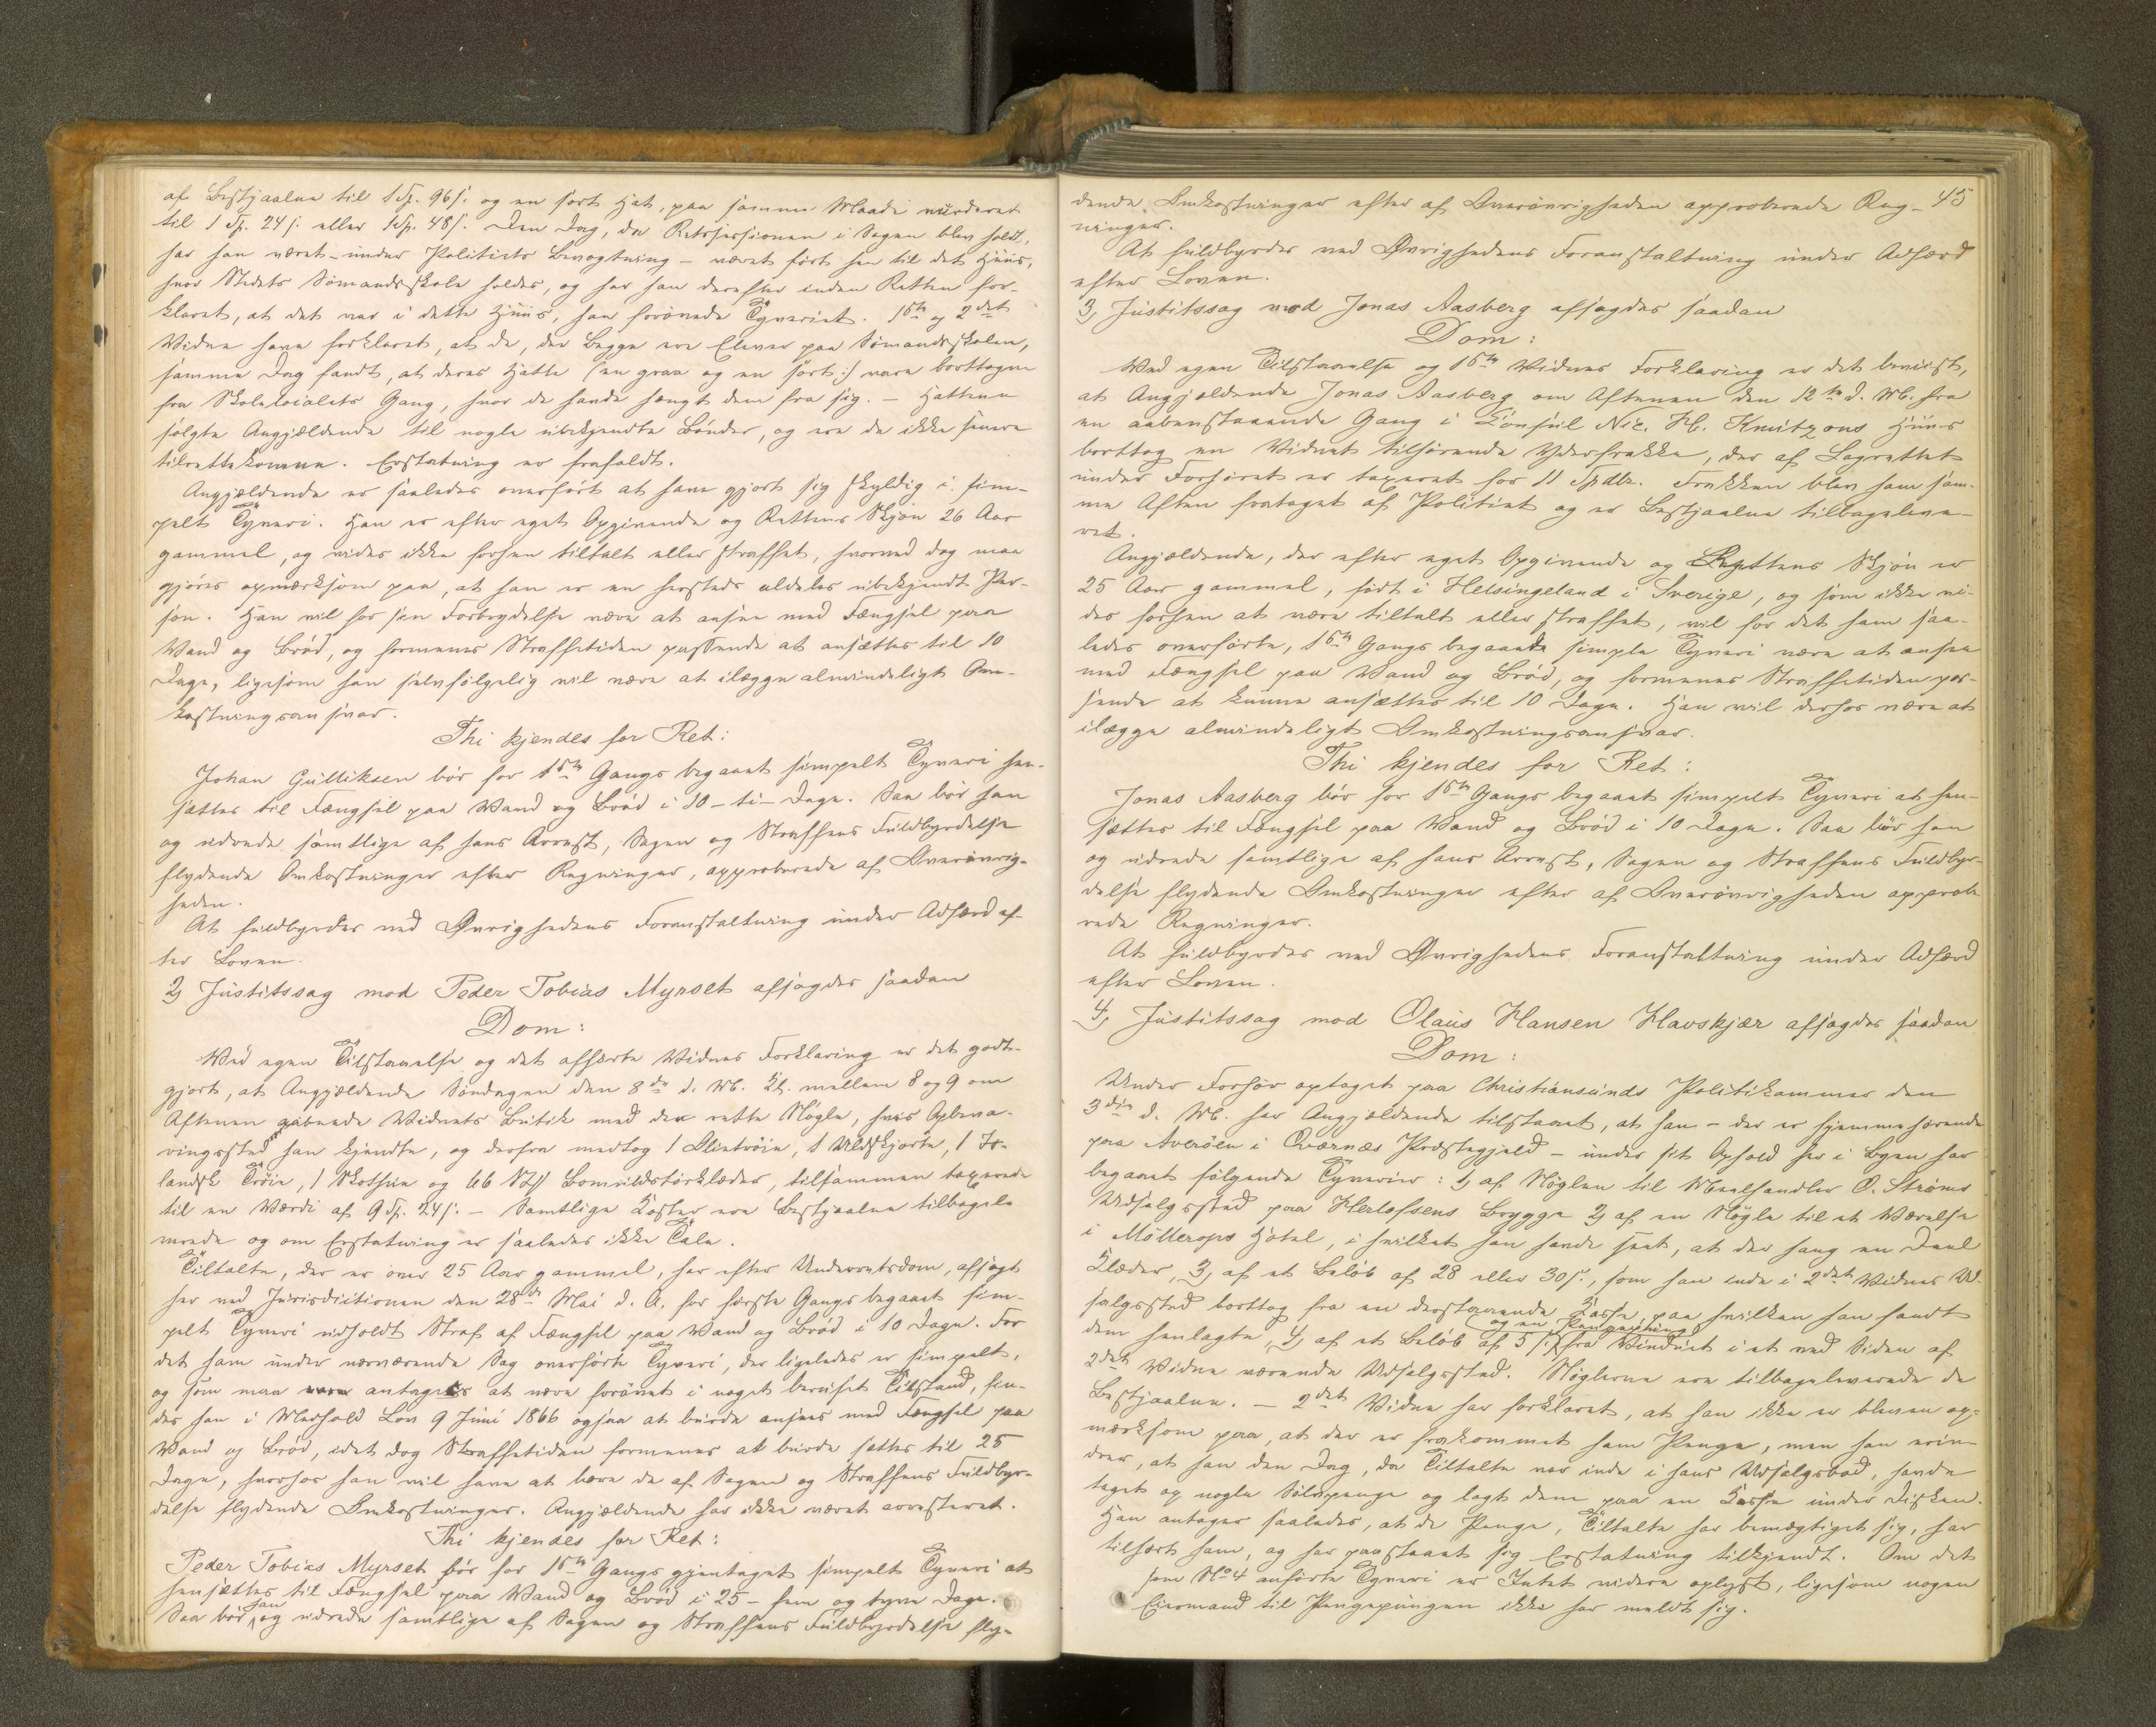 af Bestjaalne til 1 Sp. 96 s. og en sort Hat, paa samme Maade vurderet
til 1 Sp. 24 s. eller 1 Sp. 48 s. Den Dag, da Retssessionen i Sagen blev holdt,
har han været – under Politiets Bevogtning – været ført hen til det Huus,
hvor Stedets Sømandsskole holdes, og har han derefter inden Retten for-
klaret, at det var i dette Huus, han forøvede Tyveriet. 1ste og 2det
Vidne have forklaret, at de, der begge ere Elever paa Sømandsskolen,
samme Dag fandt, at deres Hatte (en graa og en sort :) vare borttagne
fra Skolelocalets Gang, hvor de havde hængt dem fra sig. – Hattene
solgte Angjældende til nogle ubekjendte Bønder, og ere de ikke senere
tilrettekomne. Erstatning er frafaldt.
Angjældende er saaledes overført at have gjort sig skyldig i sim-
pelt Tyveri. Han er efter eget Opgivende og Rettens Skjøn 26 Aar
gammel, og vides ikke forhen tiltalt eller straffet, hvorved dog maa
gjøres opmærksom paa, at han er en hersteds aldeles ubekjendt Per-
son. Han vil for sin Forbrydelse være at ansee med Fængsel paa
Vand og Brød, og formenes Straffetiden passende at ansættes til 10
Dage, ligesom han selvfølgelig vil være at ilægge almindeligt Om-
kostningsansvar.
Thi kjendes for Ret:
Johan Gulliksen bør for 1ste Gangs begaaet simpelt Tyveri hen-
sættes til Fængsel paa Vand og Brød i 10 – ti – Dage. Saa bør han
og udrede samtlige af hans Arrest, Sagen og Straffens Fuldbyrdelse
flydende Omkostninger efter Regninger, approberede af Overøvrig-
heden.
At fuldbyrdes ved Øvrighedens Foranstaltning under Adfærd ef-
ter Loven.
2, Justitssag mod Peder Tobias Myrset afsagdes saadan
Dom:
Ved egen Tilstaaelse og det afhørte Vidnes Forklaring er det godt-
gjort, at Angjældende Søndagen den 8de d. M. Kl. mellem 8 og 9 om
Aftenen aabnede Vidnets Butik med den rette Nøgle, hvis Opbeva-
ringssted han kjendte, og derfra medtog 1 Olietrøie, 1 Uldskjorte, 1 Is-
landsk Trøie, 1 Skothue og 66 Stk Bomuldstørklæder, tilsammen taxerede
til en Værdi af 9 Sp. 24 s. – Samtlige Koster ere Bestjaalne tilbagele
verede og om Erstatning er saaledes ikke Tale.
Tiltalte, der er over 25 Aar gammel, har efter Underretsdom, afsagt
her ved Jurisdictionen den 28de Mai d. A. for første Gangs begaaet sim-
pelt Tyveri udholdt Straf af Fængsel paa Vand og Brød i 10 Dage. For
det ham under nærværende Sag overførte Tyveri, der ligeledes er simpelt,
og som maa antages at være forøvet i noget beruset Tilstand, fin-
des han i Medhold Lov 9 Juni 1866 ogsaa at burde ansees med Fængsel paa
Vand og Brød, idet dog Straffetiden formenes at burde sættes til 25
Dage, hvorhos han vil have at bære de af Sagen og Straffens Fuldbyr-
delse flydende Omkostninger. Angjældende har ikke været arresteret.
Thi kjendes for Ret:
Peder Tobias Myrset bør for 1ste Gangs gjentaget simpelt Tyveri at
hensættes til Fængsel paa Vand og Brød i 25 – fem og tyve Dage.
Saa bør han og udrede samtlige af Sagen og Straffens Fuldbyrdelse fly-
45
dende Omkostninger efter af Overøvrigheden approberede Reg-
ninger.
At fuldbyrdes ved Øvrighedens Foranstaltning under Adfærd
efter Loven.
3, Justitssag mod Jonas Aasberg afsagdes saadan
Dom:
Ved egen Tilstaaelse og 1ste Vidnes Forklaring er det beviist,
at Angjældende Jonas Aasberg om Aftenen den 12te d. M. fra
en aabenstaaende Gang i Consul Nic. H. Knutzons Huus
borttog en Vidnet tilhørende Yderfrakke, der af Lagrettet
under Forhøret er taxeret for 11 Spdlr. Frakken blev ham sam-
me Aften frataget af Politiet og er Bestjaalne tilbageleve-
ret.
Angjældende, der efter eget Opgivende og Rettens Skjøn er
25 Aar gammel, født i Helsingeland i Sverige, og som ikke vi-
des forhen at være tiltalt eller straffet, vil for det ham saa-
ledes overførte, 1ste Gangs begaaede simple Tyveri være at ansee
med Fængsel paa Vand og Brød, og formenes Straffetiden pas-
sende at kunne ansættes til 10 Dage. Han vil derhos være at
ilægge almindeligt Omkostningsansvar.
Thi kjendes for Ret:
Jonas Aasberg bør for 1ste Gangs begaaet simpelt Tyveri at hen-
sættes til Fængsel paa Vand og Brød i 10 Dage. Saa bør han
og udrede samtlige af hans Arrest, Sagen og Straffens Fuldbyr-
delse flydende Omkostninger efter af Overøvrigheden approbe
rede Regninger.
At fuldbyrdes ved Øvrighedens Foranstaltning under Adfærd
efter Loven.
4, Justitssag mod Olaus Hansen Havskjær afsagdes saadan
Dom:
Under Forhør optaget paa Christiansunds Politikammer den
3die d. M. har Angjældende tilstaaet, at han – der er hjemmehørende
paa Averøen i Qværnæs Præstegjeld – under sit Ophold her i Byen har
begaaet følgende Tyverier: 1, af Nøglen til Meelhandler O. Strøms
Udsalgssted paa Herlofsens Brygge 2, af en Nøgle til et Værelse
i Møllerops Hotel, i hvilket han havde seet, at der hang en Deel
Klæder, 3, af et Beløb af 28 eller 30 s., som han inde i 2det Vidnes Ud-
salgssted borttog fra en derstaaende Kasse paa hvilken han fandt
dem henlagte, 4, af et Beløb af 5 s. (og en Pengepung) fra Vinduet i et ved Siden af
2det Vidne værende Udsalgssted. Nøglerne ere tilbageleverede de
Bestjaalne. – 2det Vidne har forklaret, at han ikke er bleven op-
mærksom paa, at der er frakommet ham Penge, men han erin-
drer, at han den Dag, da Tiltalte var inde i hans Udsalgsbod, havde
taget op nogle Sølvpenge og lagt dem paa en Kasse under Disken.
Han antager saaledes, at de Penge, Tiltalte har bemægtiget sig, har
tilhørt ham, og har paastaaet sig Erstatning tilkjendt. Om det
som No 4 anførte Tyveri er Intet videre oplyst, ligesom nogen
Eiermand til Pengepungen ikke har meldt sig.